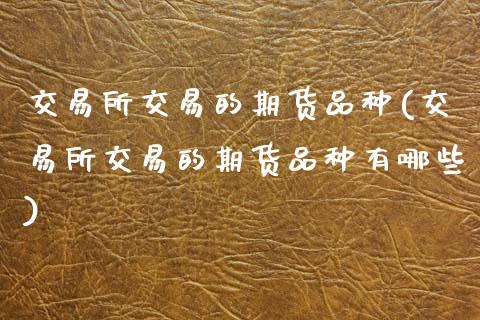 交易所交易的期货品种(交
易所交易的期货品种有哪些
)